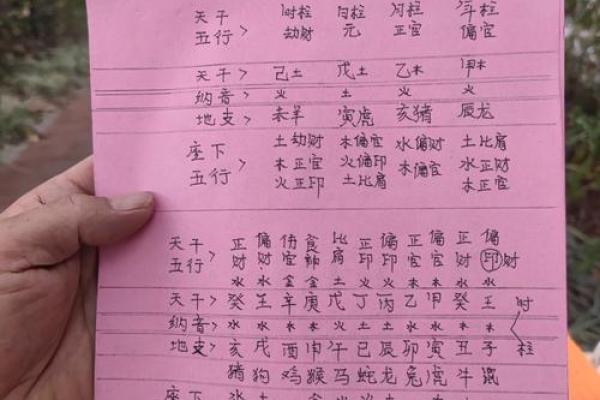 天干 时柱 日柱 月柱 年柱
五行> 劫财 元 正官 偏官
天干> 己土 戊土 乙木 甲木
纳音> 火 土 火 火
地支> 未羊 寅虎 亥猪 辰龙
座下 土劫财 木偏官 水偏财 土比肩
五行> 木正官 火偏印 木偏官 水正财
火正印 土比肩 木正官
天干 正 偏 伤 食 比 正 偏 正 偏 正 偏
五行> 财 财 官 神 肩 印 印 官 官 财 印 财
水 水 金 金 土 火 火 木 木 水 水
天干> 癸 壬 辛 庚 戊 丁 丙 乙 甲 癸 壬 时
纳音> 水 水 木 木 火 土 土 水 水 木 木
地支> 亥 戌 酉 申 午 巳 辰 卯 寅 丑 子 柱
猪 狗 鸡 猴 马 蛇 龙 兔 虎 牛 鼠
座下 水 土 金 火 土 木